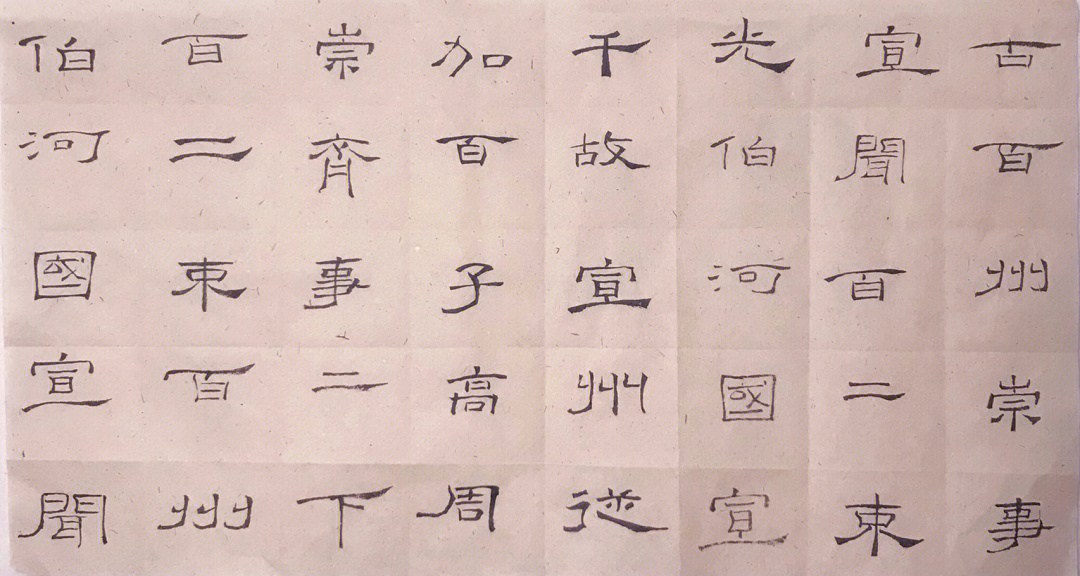 古百州崇事
宣聞百二東
光伯河國宣
千故宣州從
加百子高周
崇齊事二下
百二東百州
伯河國宣聞